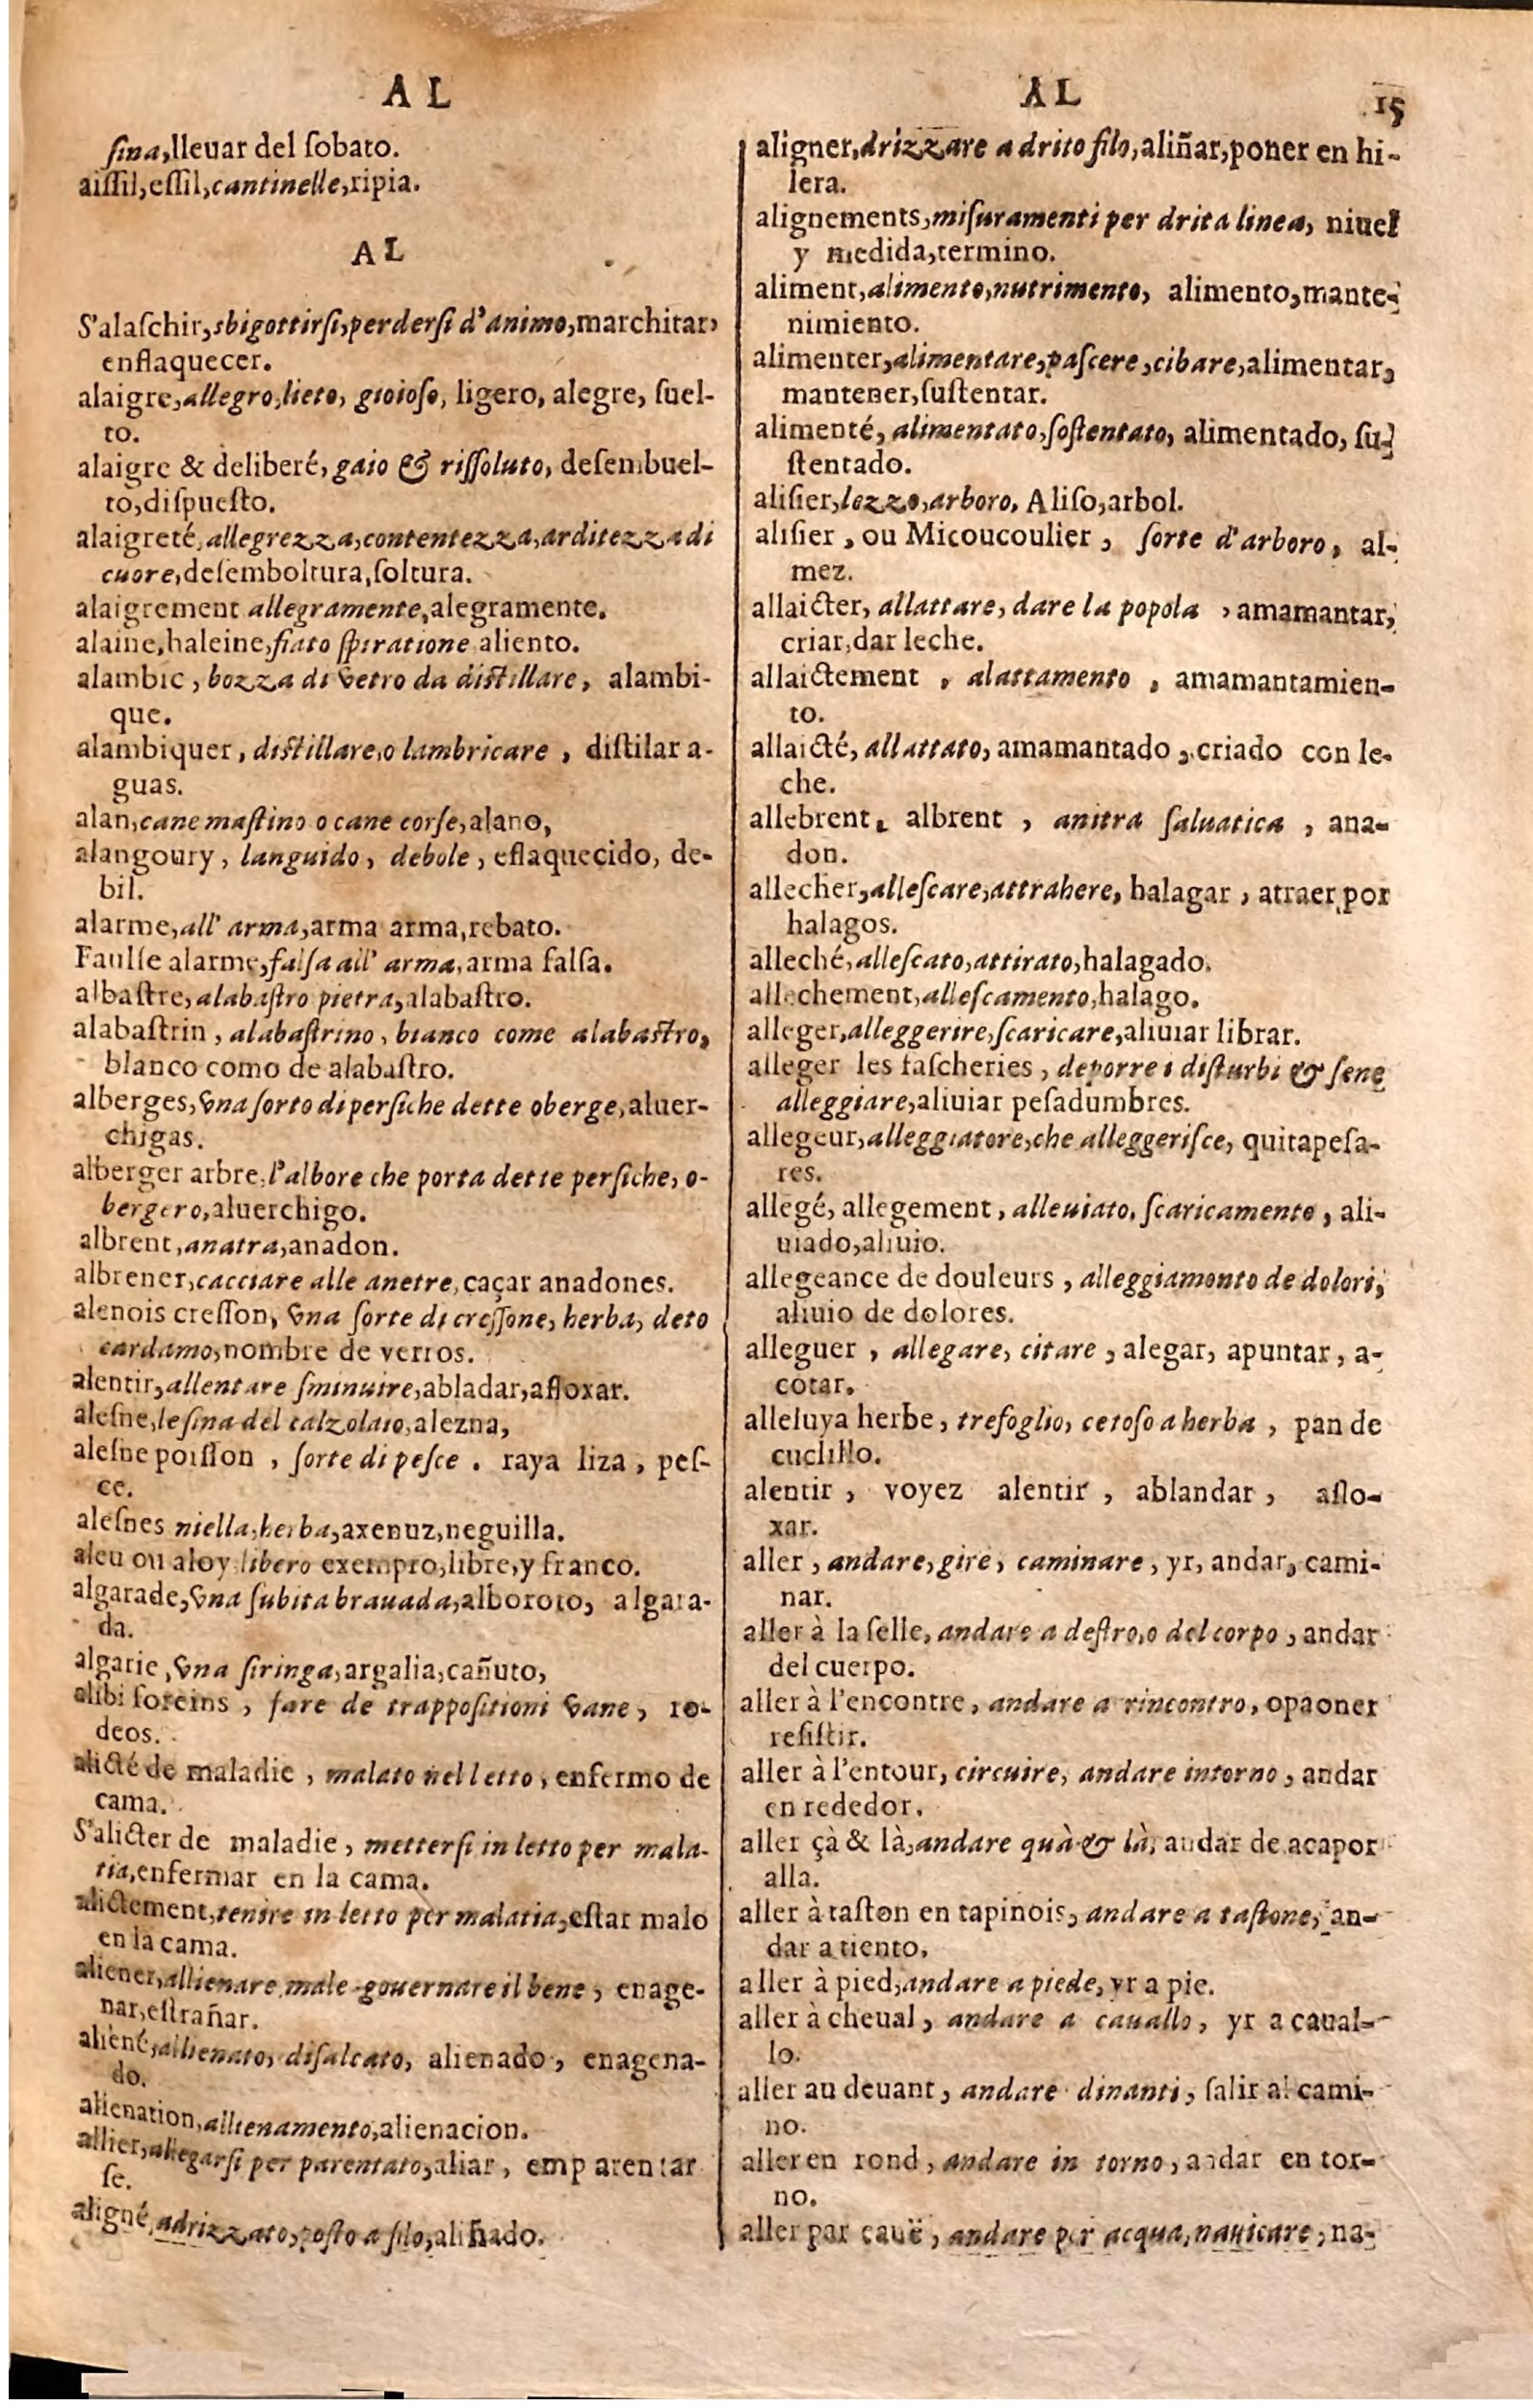 AL
ſina,lleuar del ſobato.
aiſſil,eſſil,cantinelle,ripia.
AL
S'alaſchir,sbigottirſi,perderſi d'animo,marchitar,
enflaquecer.
alaigre,allegro,lieto, gioioſo, ligero, alegre, ſuel-
to.
alaigre & deliberé, gaio & riſſoluto, deſembuel-
to,diſpueſto.
alaigreté,allegrezza,contentezza,arditezza di
cuore,deſemboltura,ſoltura.
alaigrement allegramente,alegramente.
alaine,haleine,fiato ſpiratione aliento.
alambic, bozza di vetro da diſtillare, alambi-
que.
alambiquer, diſtillare,o lambricare, diſtilar a-
guas.
alan,cane maſtino o cane corſe,alano,
alangoury, languido, debole, eflaquecido, de-
bil.
alarme,all' arma,arma arma,rebato.
Faulſe alarme,falſa all' arma,arma falſa.
albaſtre,alabaſtro pietra,alabaſtro.
alabaſtrin, alabaſtrino, bianco come alabaſtro,
blanco como de alabaſtro.
alberges,vna ſorto di perſiche dette oberge,aluer-
chigas.
alberger arbre,l'albore che porta dette perſiche, o-
bergero,aluerchigo.
albrent,anatra,anadon.
albrener,cacciare alle anetre,caçar anadones.
alenois creſſon, vna ſorte di creſſone, herba, deto
cardamo,nombre de verros.
alentir,allentare ſminuire,abladar,afloxar.
aleſne,leſina del calzolaio,alezna,
aleſne poiſſon, ſorte di peſce. raya liza, peſ-
ce.
aleſnes niella,herba,axenuz,neguilla.
aleu ou aloy libero exempro,libre,y franco.
algarade,vna ſubita brauada,alboroto, algara-
da.
algarie, vna ſiringa,argalia,cañuto,
alibi foreins, fare de trappoſitioni vane, ro-
deos.
alicté de maladie, malato nel letto, enfermo de
cama.
S'alicter de maladie, metterſi in letto per mala-
tia,enfermar en la cama.
alictement,tenire in letto per malatia,eſtar malo
en la cama.
aliener,allienare male gouernare il bene, enage-
nar,eſtrañar.
aliené,allienato, diſalcato, alienado, enagena-
do.
alienation,allienamento,alienacion.
allier,allegarſi per parentato,aliar, emp arentar
ſe.
aligné,adrizzato,poſto a filo,aliñado.
AL 15
aligner,drizzare a drito filo,aliñar,poner en hi-
lera.
alignements,miſuramenti per drita linea, niuel
y medida,termino.
aliment,alimento,nutrimento, alimento,mante-
nimiento.
alimenter,alimentare,paſcere,cibare,alimentar,
mantener,ſuſtentar.
alimenté, alimentato,ſoſtentato, alimentado, ſu-
ſtentado.
aliſier,lozzo,arboro. Aliſo,arbol.
aliſier, ou Micoucoulier, ſorte d'arboro, al-
mez.
allaicter, allattare, dare la popola, amamantar,
criar,dar leche.
allaictement, alattamento, amamantamien-
to.
allaicté, allattato, amamantado, criado con le-
che.
allebrent, albrent, anitra ſaluatica, ana-
don.
allecher,alleſcare,attrahere, halagar, atraer por
halagos.
alleché,alleſcato,attirato,halagado.
allechement,alleſcamento,halago.
alleger,alleggerire,ſcaricare,aliuiar librar.
alleger les faſcheries, deporre i diſturbi & ſene
alleggiare,aliuiar peſadumbres.
allegeur,alleggiatore,che alleggeriſce, quitapeſa-
res.
allegé, allegement, alleuiato, ſcaricamento, ali-
uiado,aliuio.
allegeance de douleurs, alleggiamonto de dolori,
aliuio de dolores.
alleguer, allegare, citare, alegar, apuntar, a-
cotar.
alleluya herbe, trefoglio, cetoſo a herba, pan de
cuclillo.
alentir, voyez alentir, ablandar, aflo-
xar.
aller, andare, gire, caminare, yr, andar, cami-
nar.
aller à la ſelle, andare a deſtro,o del corpo, andar
del cuerpo.
aller à l'encontre, andare a rincontro, opaoner
reſiſtir.
aller à l'entour, circuire, andare intorno, andar
en rededor.
aller çà & là,andare quà & là, andar de acapor
alla.
aller à taſton en tapinois, andare a taſtone, an-
dar a tiento.
aller à pied,andare a piede, yr a pie.
aller à cheual, andare a cauallo, yr a caual-
lo.
aller au deuant, andare dinanti, ſalir al cami-
no.
aller en rond, andare in torno, andar en tor-
no.
aller par eauë, andare per acqua,nauicare, na-